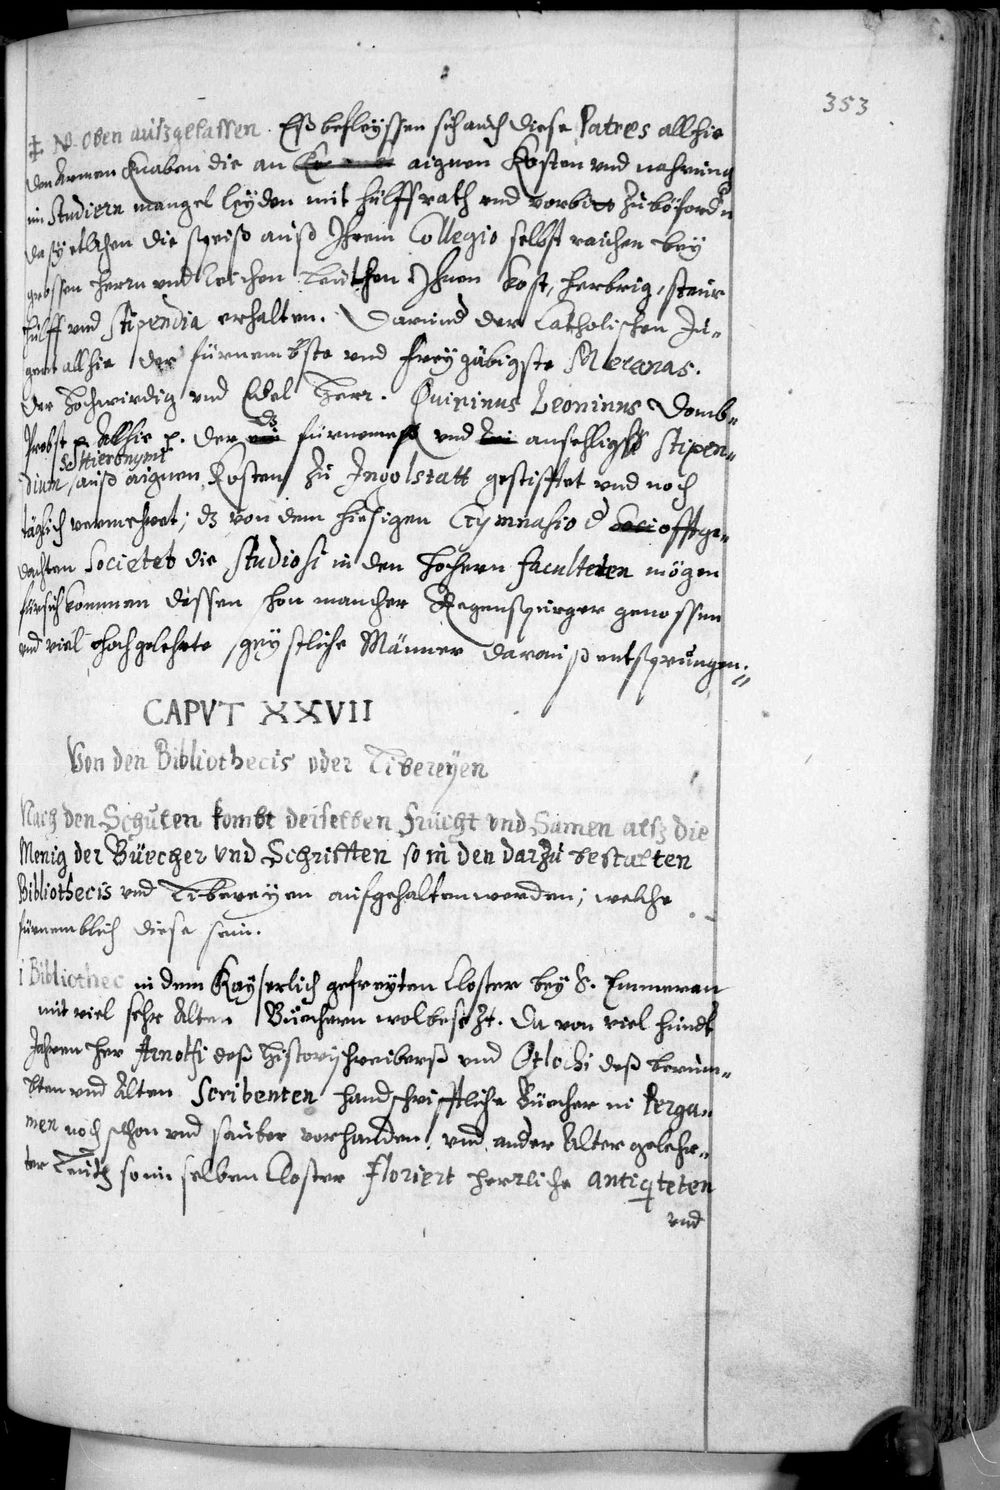 353
‡ NB oben außgelassen. Eß befleyssen sich auch diese Patres allhie
den Armen Knaben die an aignen Kosten vnd nahrung
im Studiern mangel leyden mit hülff rath vnd vorbitt zu bőfordn
da sy etlichen die speiß auß Ihrem Collegio selbst raichen bey
grossen herrn vnd reichen Leüthen Ihnen kost, herbrig, steur
hülff vnd Stipendia erhalten. Darund der Catholischen Ju-
gent allhie der fürnembste vnd freygäbigste Mecænas.
der Hochwirdig vnd Edel Herr. Quirinus Leoninus Domb-
Probst p. Allhie p. der dz fürnemest vnd ansehligst Stipen-
S. Hieronymi
dium auß aignen Kosten zu Ingolstatt gestifftet vnd noch
täglich vermehret; dz von dem hiesigen Gymnasio d offtge-
dachten Societet die Studiosi in den Hochern faculteten mögen
fürsich kommen dessen schon mancher Regenspurger genossen
vnd viel hochgelehrte, geystliche Männer darauß entsprungen.
CAPVT XXVII
Von den Bibliothecis oder Libereyen
Nach den Schulen kombt derselben frücht vnd Samen alß die
Menig der Büecher vnd Schrifften so in den darzu bestalten
Bibliothecis vnd Libereyen aufgehalten werden; welche
fürnemblich diese sein.
1 Bibliothec in dem Kayserlich gefreyten Closter bey S. Emmeran
mit viel sehr Alten Büechern wolbesezt. Da von viel hundt
Jahren her Arnolfi deß Historyschreiberß vnd Otlochi deß berüm-
bten vnd Alten Scribenten handschrifftliche Büecher in Perga-
men noch schon vnd sauber vorhanden, vnd ander Alter gelehr-
ter Leuth so im selben Closter floriert herrliche antiqteten
vnd